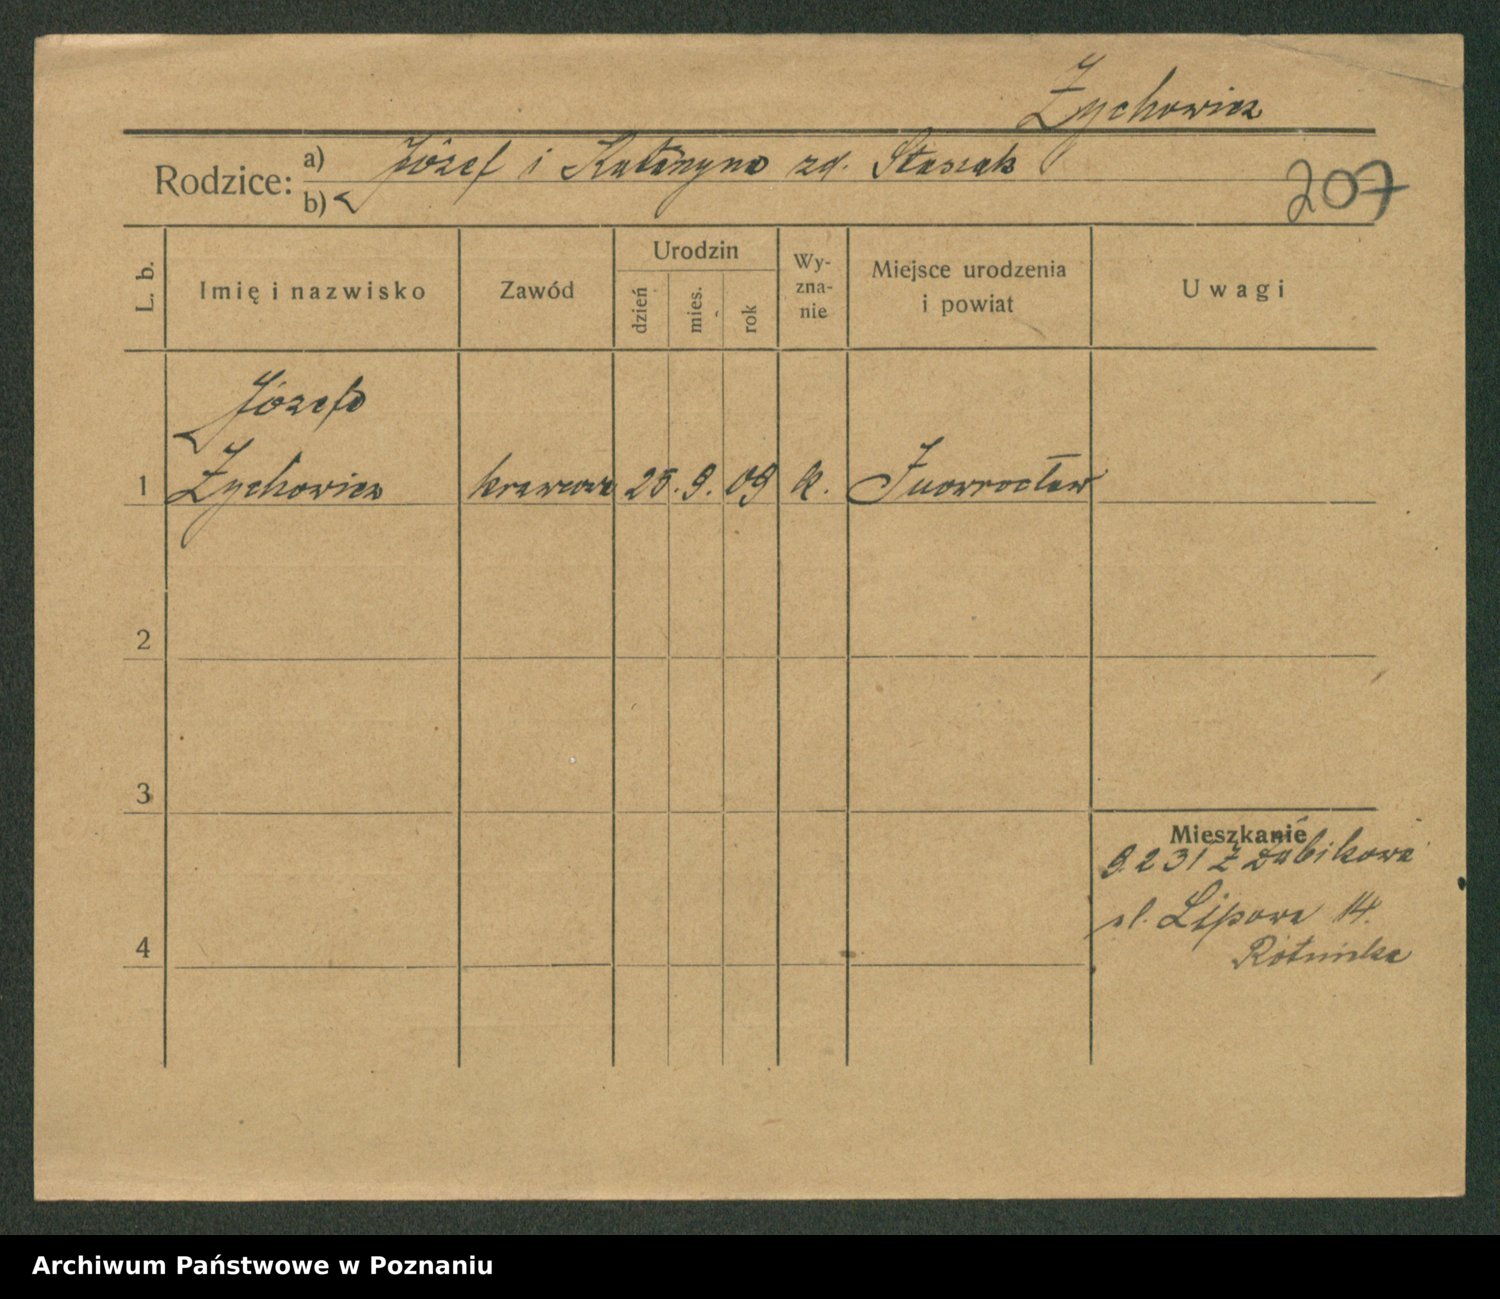 Żychowicz
Rodzice: a) Józef i Katarzyna zd. Stasiak
b)
207
L. b. Imię i nazwisko Zawód Urodzin dzień mies. rok Wy-zna-nie Miejsce urodzenia i powiat Uwagi
Józefa
1 Żychowicz krawcowa 25. 9. 09 k. Inowrocław
2
3
Mieszkanie
9.231 z Żabikowa
ul. Lipowa 14.
4
Archiwum Państwowe w Poznaniu